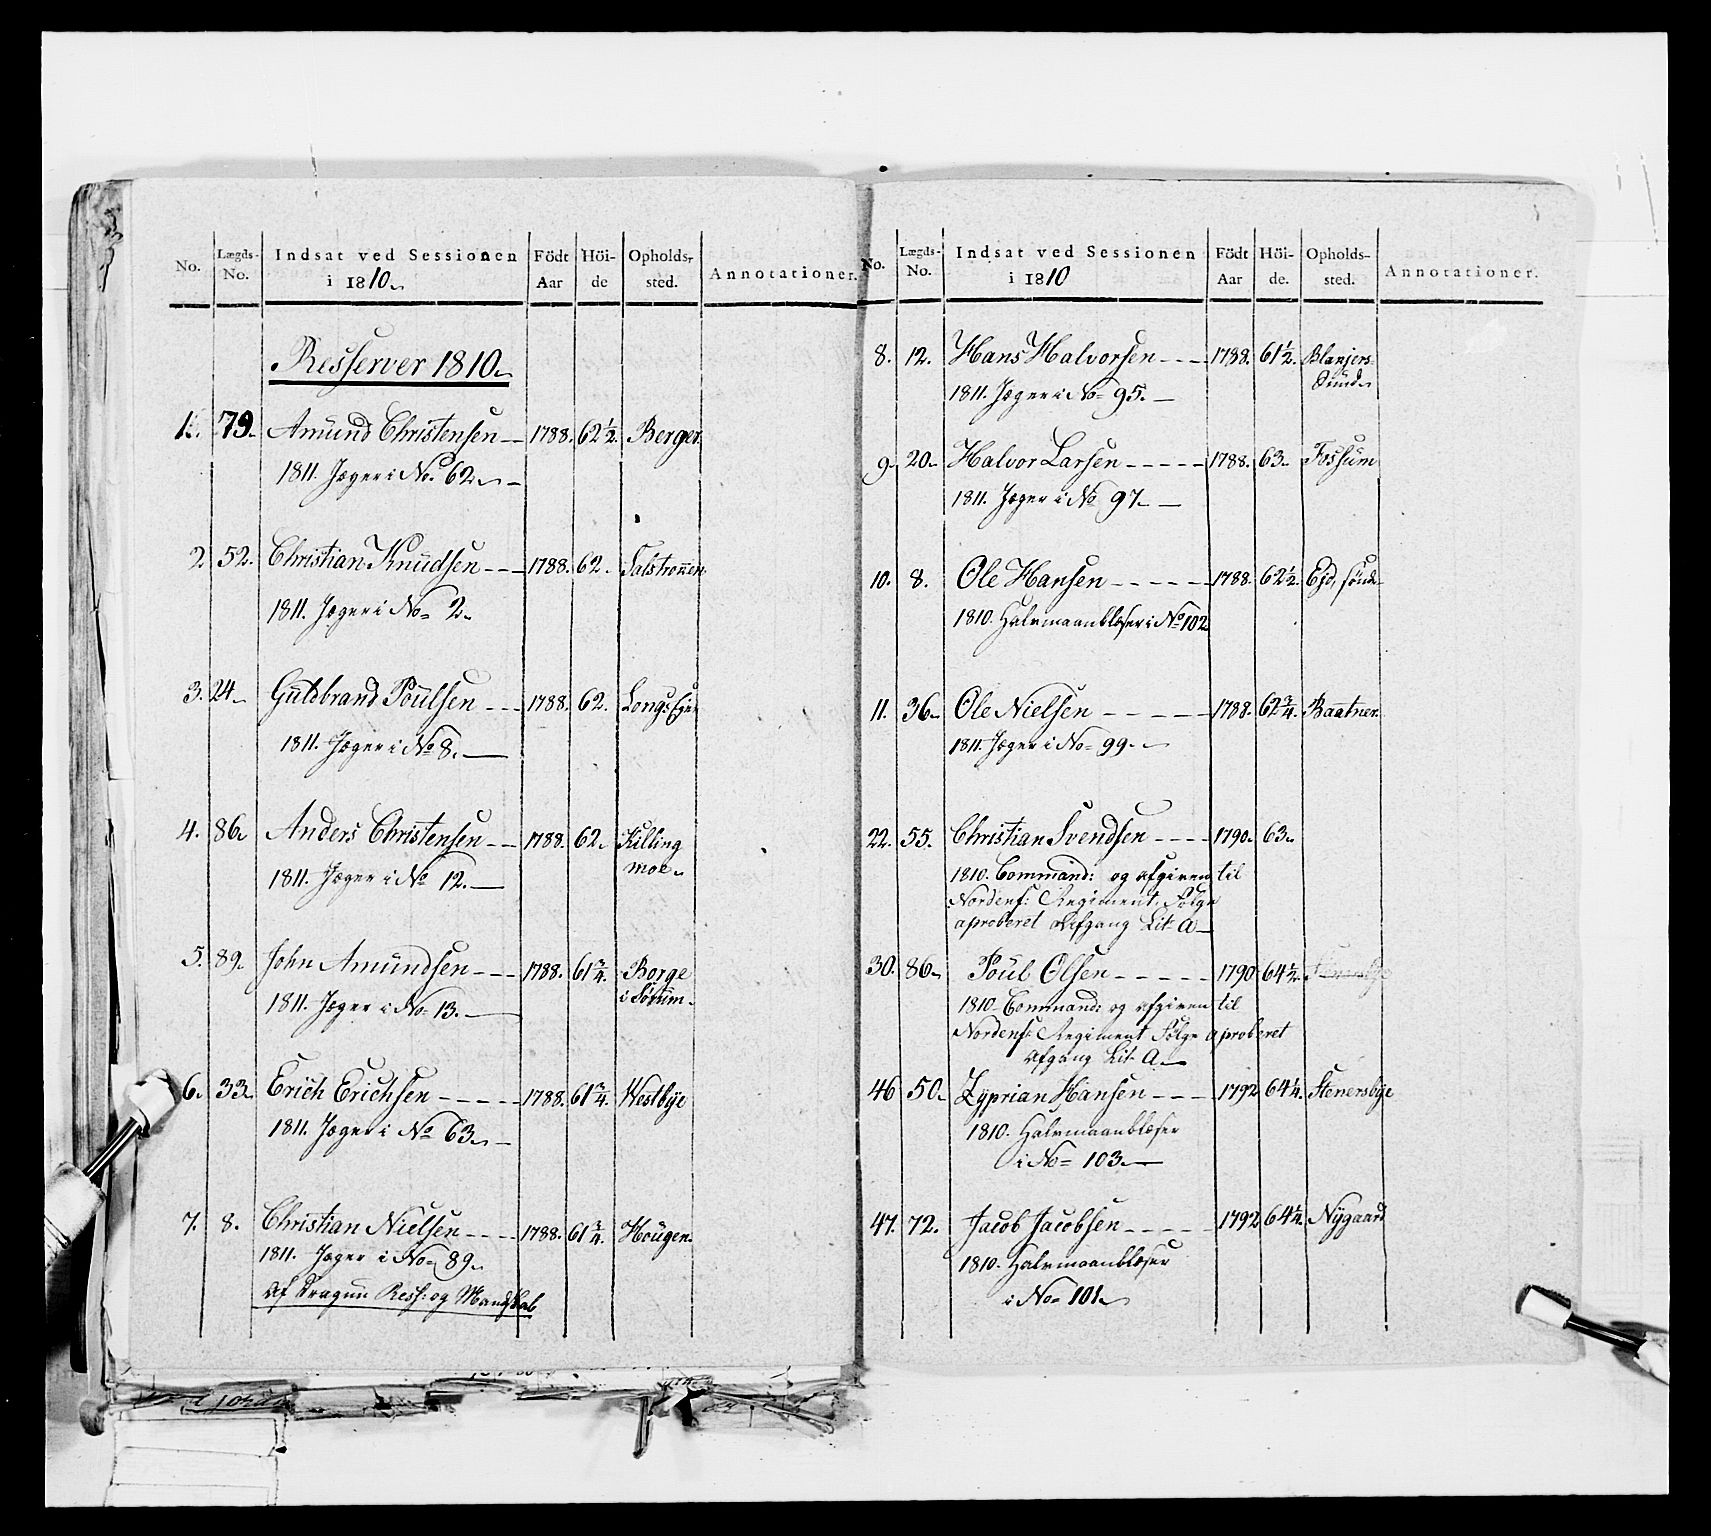 No. Lægds-No. Indsat ved Sessionen i 1810 Födt Aar Höi-de Opholds-sted. Annotationer.
Resserver 1810
1. 79. Amund Christensen 1788. 62½. Berger
1811. Jæger i No. 62.
2 52. Christian Knudsen 1788. 62.
1811. Jæger i No 2.
3. 24 Guldbrand Poulsen 1788. 62.
1811. Jæger i No 8.
4. 86 Anders Christensen 1788. 62. Killing
moe
1811. Jæger i No 12.
5. 89. John Amundsen 1788. 61¾. Borge
i Sørum
1811. Jæger i No 13.
6. 33 Erich Erichsen 1788. 61¾. Westbye
1811. Jæger i No 63.
7. 8. Christian Nielsen 1788. 61¾. Hougen
1811. Jæger i No 89.
Af Dragun Ress: og Mandskab
No. Lægds-No. Indsat ved Sessionen i 1810 Födt Aar Höi-de. Opholds-sted. Annotationer.
8. 12. Hans Halvorsen 1788. 61½. Blanjers-
Sund
1811. Jæger i No 95.
9. 20. Halvor Larsen 1788. 63. Fossum
1811. Jæger i No 97.
10. 8. Ole Hansen 1788. 62½. Ejd, sønd
1810. Halvmaanblæser i No 102
11. 36. Ole Nielsen 1788. 62¾. Baatner
1811. Jæger i No 99.
22. 55. Christian Svendsen 1790. 63.
1810. Command: og afgiven til
Nordenf: Regiment. Følge
aproberet Afgang Lit A
30. 86. Poul Olsen 1790 64½.
1810. Command: og afgiven til
Nordenf: Regiment Følge aproberet
Afgang Lit A.
46 50. Zyprian Hansen 1792 64¼. Stenersbye
1810. Halvmaanblæser
i No 103.
47. 72. Jacob Jacobsen 1792 64¼. Nygaard
1810. Halvmaanblæser
i No 101.